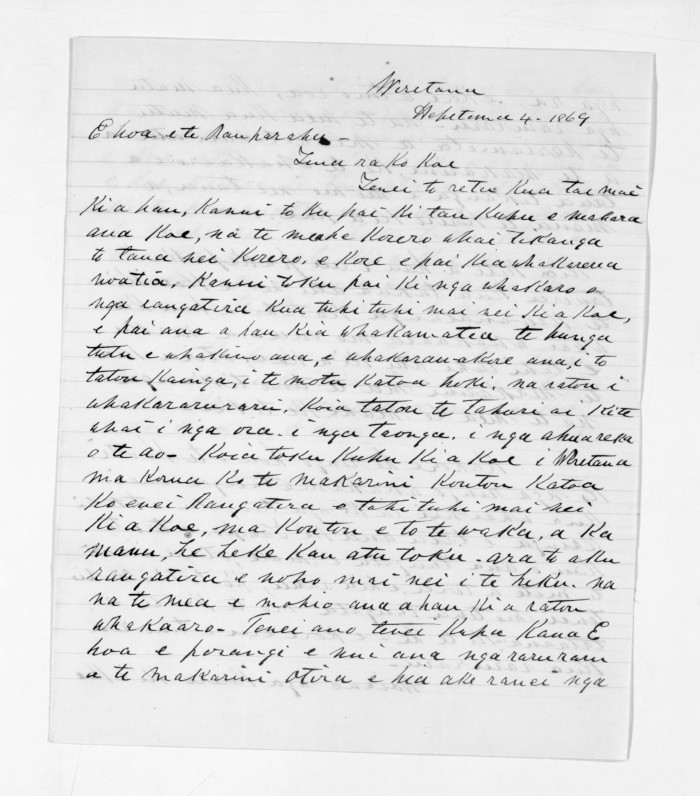 Weretana
Hepetema 4 - 1869
E hoa e te Rauparaha -
Tena ra ko koe
Tenei to reta kua tae mai
ki a hau, kanui to ku pai ki tau kupu e mahara
ana koe, na te meahe korero whai tikanga
to taua nei korero, e kore e pai kia whakarerea
noatia, kanui toku pai ki nga whakaro o
nga rangatira kua tuhi tuhi mai nei ki a koe,
e pai ana a hau kia whakamatea te hunga
tutu e whakino ana, e whakarau-akore ana, i to
tatou kainga, i te motu katoa hoki, na ratou i
whakararuraru, koia tatou te tahuri ai ki te
whai i nga ora - i nga taonga. i nga ahuareka
o te ao - koia toku kupu ki a koe i Weretana
ma korua ko te makarini koutou katoa
ko enei Rangatira e tuhi tuhi mai nei
ki a koe, ma koutou e to te waka, a ka
manu, he heke kau atu toku - ara to aku
rangatira e noho mai nei i te hiku. na
na te mea e mohio ana ahau ki a ratou
whakaaro - Tenei ano tenei kupu kaua E
hoa e porangi e nui ana nga raruraru
a te makarini otira e hia ake ranei nga